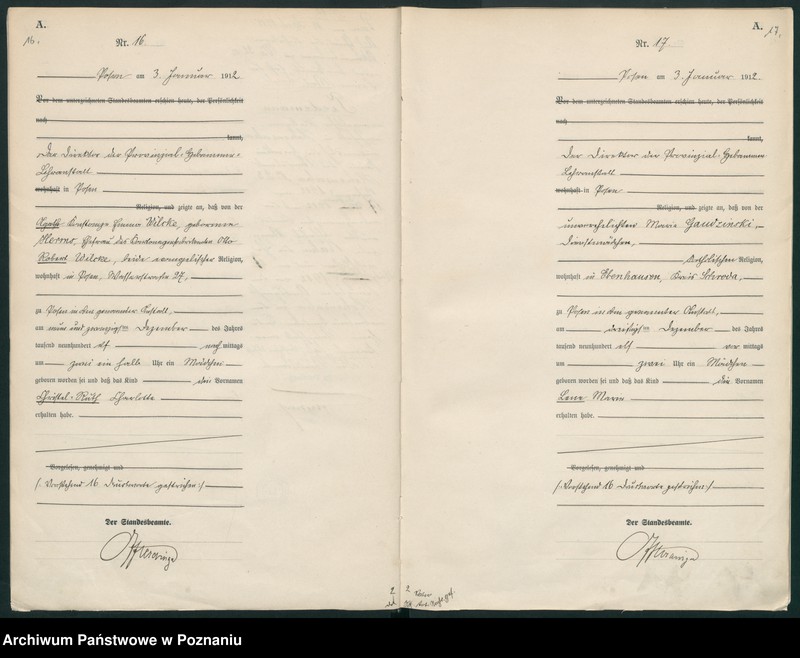 A.
16.
Nr. 16.
Posen am 3. Januar 1912
Vor dem unterzeichneten Standesbeamten erschien heute, der Persönlichkeit
nach
kannt,
Der Direktor der Provinzial-Hebammen-
Lehranstalt
wohnhaft in Posen
Religion, und zeigte an, daß von der
Emma Wilcke, geborenen
Ehefrau des Otto
Robert Wilcke, beide evangelischer Religion,
wohnhaft in Posen, 27,
zu Posen in der genannten Anstalt,
am neun und zwanzigsten Dezember des Jahres
tausend neunhundert elf nachmittags
um zwei ein halb Uhr ein Mädchen
geboren worden sei und daß das Kind die Vornamen
Christel Ruth Charlotte
erhalten habe.
Vorgelesen, genehmigt und
(Vorstehend 16 Druckworte gestrichen)
Der Standesbeamte.
A.
17.
Nr. 17.
Posen am 3. Januar 1912.
Vor dem unterzeichneten Standesbeamten erschien heute, der Persönlichkeit
nach
kannt,
Der Direktor der Provinzial-Hebammen
Lehranstalt
wohnhaft in Posen
Religion, und zeigte an, daß von der
unverehelichten Marie Gaudzinski,
Dienstmädchen,
katholischen Religion,
wohnhaft in Ebenhausen, Kreis Schroda,
zu Posen in der genannten Anstalt,
am dreißigsten Dezember des Jahres
tausend neunhundert elf vormittags
um zwei Uhr ein Mädchen
geboren worden sei und daß das Kind die Vornamen
Lene Maria
erhalten habe.
Vorgelesen, genehmigt und
(Vorstehend 16 Druckworte gestrichen)
Der Standesbeamte.
Archiwum Państwowe w Poznaniu